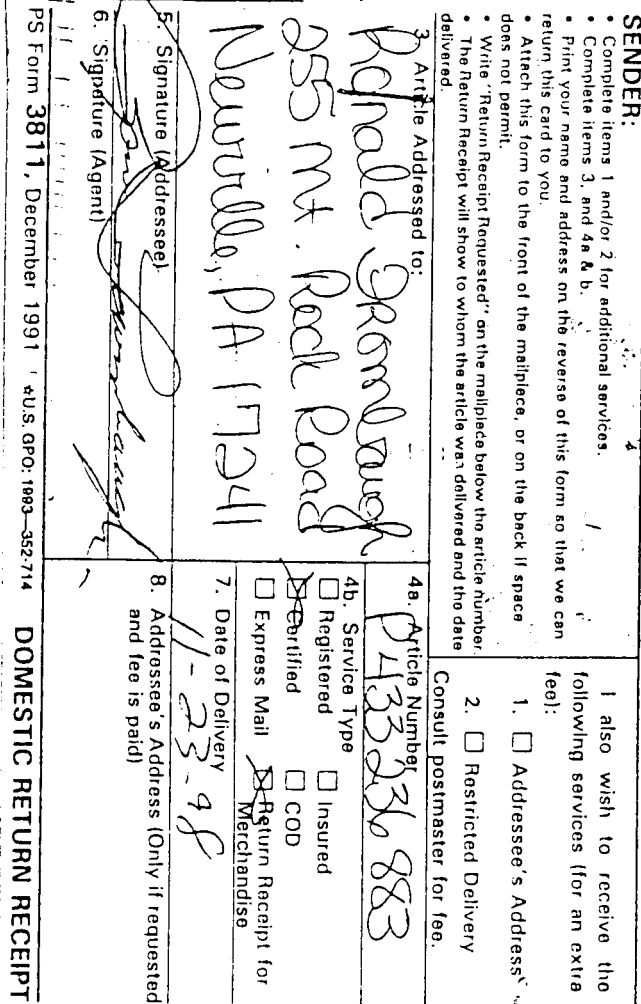 SENDER:
• Complete items 1 and/or 2 for additional services.
• Complete items 3, and 4a & b.
• Print your name and address on the reverse of this form so that we can
return this card to you.
• Attach this form to the front of the mailpiece, or on the back if space
does not permit.
• Write "Return Receipt Requested" on the mailpiece below the article number.
• The Return Receipt will show to whom the article was delivered and the date
delivered.
I also wish to receive the
following services (for an extra
fee):
1. ☐ Addressee's Address
2. ☐ Restricted Delivery
Consult postmaster for fee.
3. Article Addressed to:
Ronald Grombaugh
255 Mt. Rock Road
Newville, PA 17241
4a. Article Number
P433236883
4b. Service Type
☐ Registered ☐ Insured
☒ Certified ☐ COD
☐ Express Mail ☒ Return Receipt for
Merchandise
7. Date of Delivery
11-23-98
5. Signature (Addressee)
6. Signature (Agent)
8. Addressee's Address (Only if requested
and fee is paid)
PS Form 3811, December 1991 ☆U.S. GPO: 1993—352-714 DOMESTIC RETURN RECEIPT